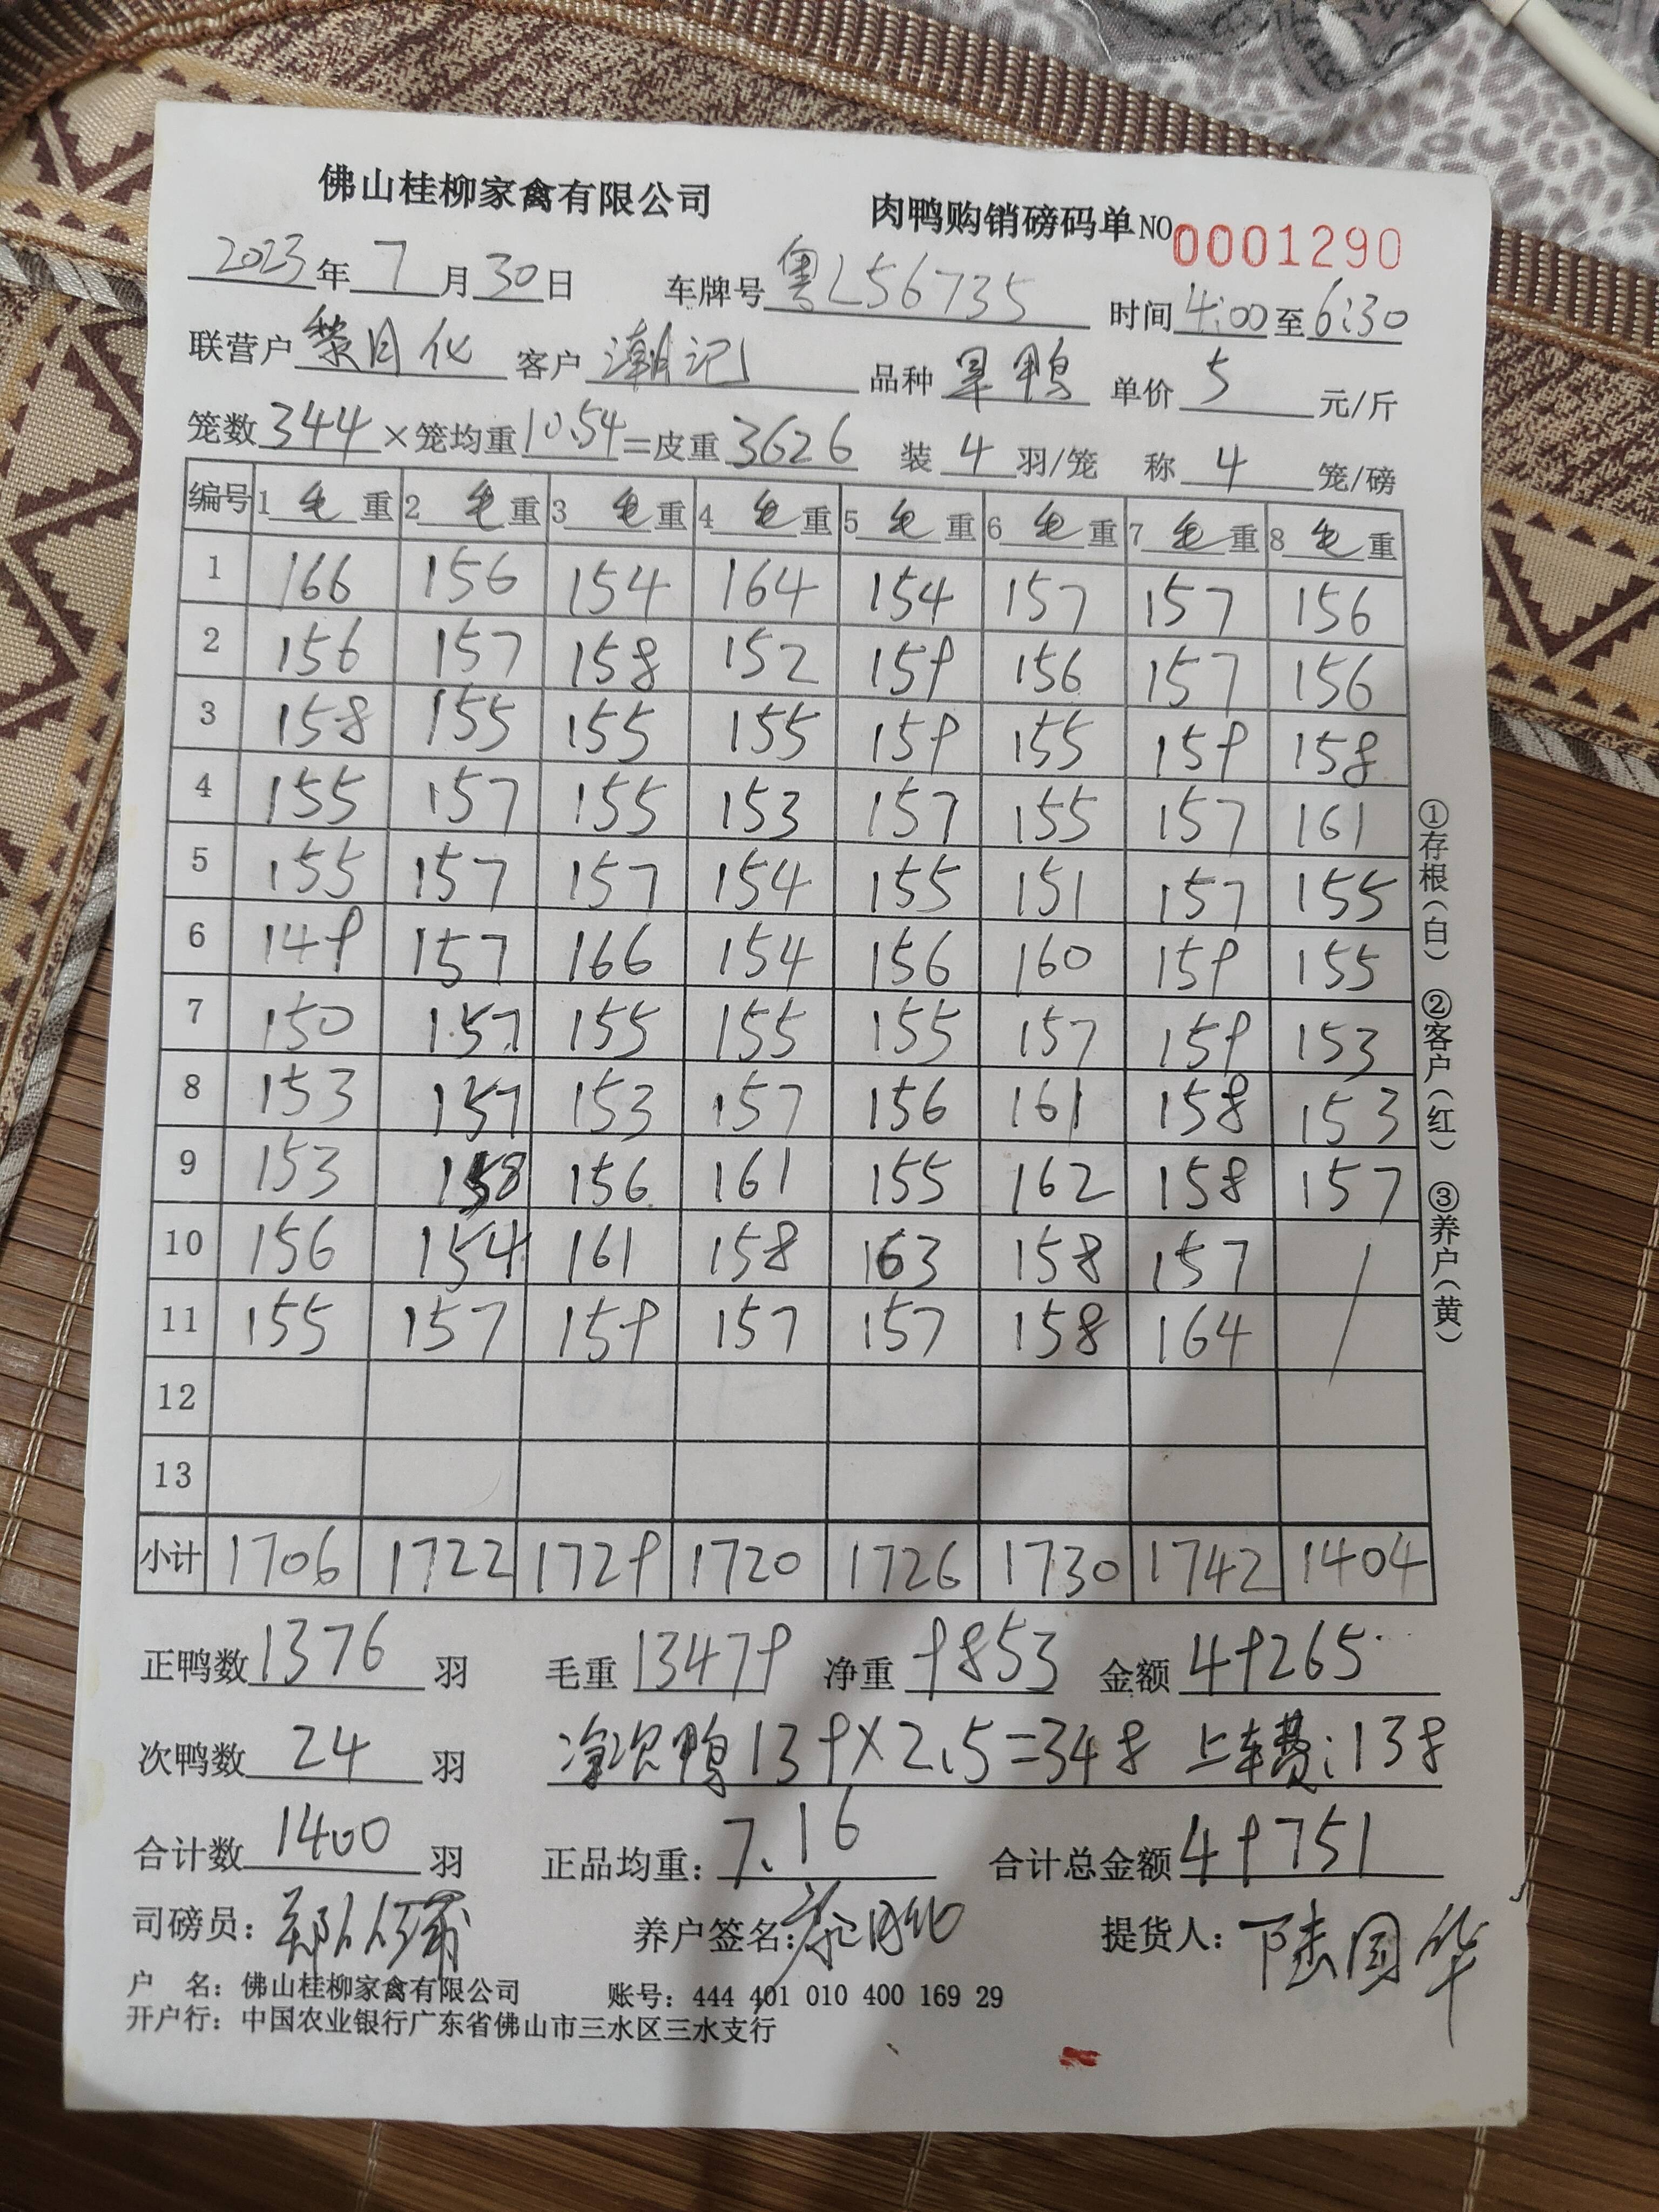 佛山桂柳家禽有限公司 肉鸭购销磅码单 NO 0001290
2023年7月30日 车牌号 粤L56735 时间 4:00至6:30
联营户 黎月化 客户 潮记 品种 旱鸭 单价 5 元/斤
笼数344×笼均重10.54=皮重3626 装4羽/笼 称4笼/磅
编号 1毛重 2毛重 3毛重 4毛重 5毛重 6毛重 7毛重 8毛重
1 166 156 154 164 154 157 157 156
2 156 157 158 152 159 156 157 156
3 158 155 155 155 159 155 159 158
4 155 157 155 153 157 155 157 161
5 155 157 157 154 155 151 157 155
6 149 157 166 154 156 160 159 155
7 150 157 155 155 155 157 159 153
8 153 157 153 157 156 161 158 153
9 153 158 156 161 155 162 158 157
10 156 154 161 158 163 158 157
11 155 157 159 157 157 158 164
12
13
小计 1706 1722 1729 1720 1726 1730 1742 1404
①存根(白) ②客户(红) ③养户(黄)
正鸭数1376羽 毛重13479 净重9853 金额49265
次鸭数24羽 净次鸭139×2.5=348 上车费:138
合计数1400羽 正品均重:7.16 合计总金额49751
司磅员: 养户签名: 提货人:陆国华
户 名:佛山桂柳家禽有限公司 账号:444 401 010 400 169 29
开户行:中国农业银行广东省佛山市三水区三水支行